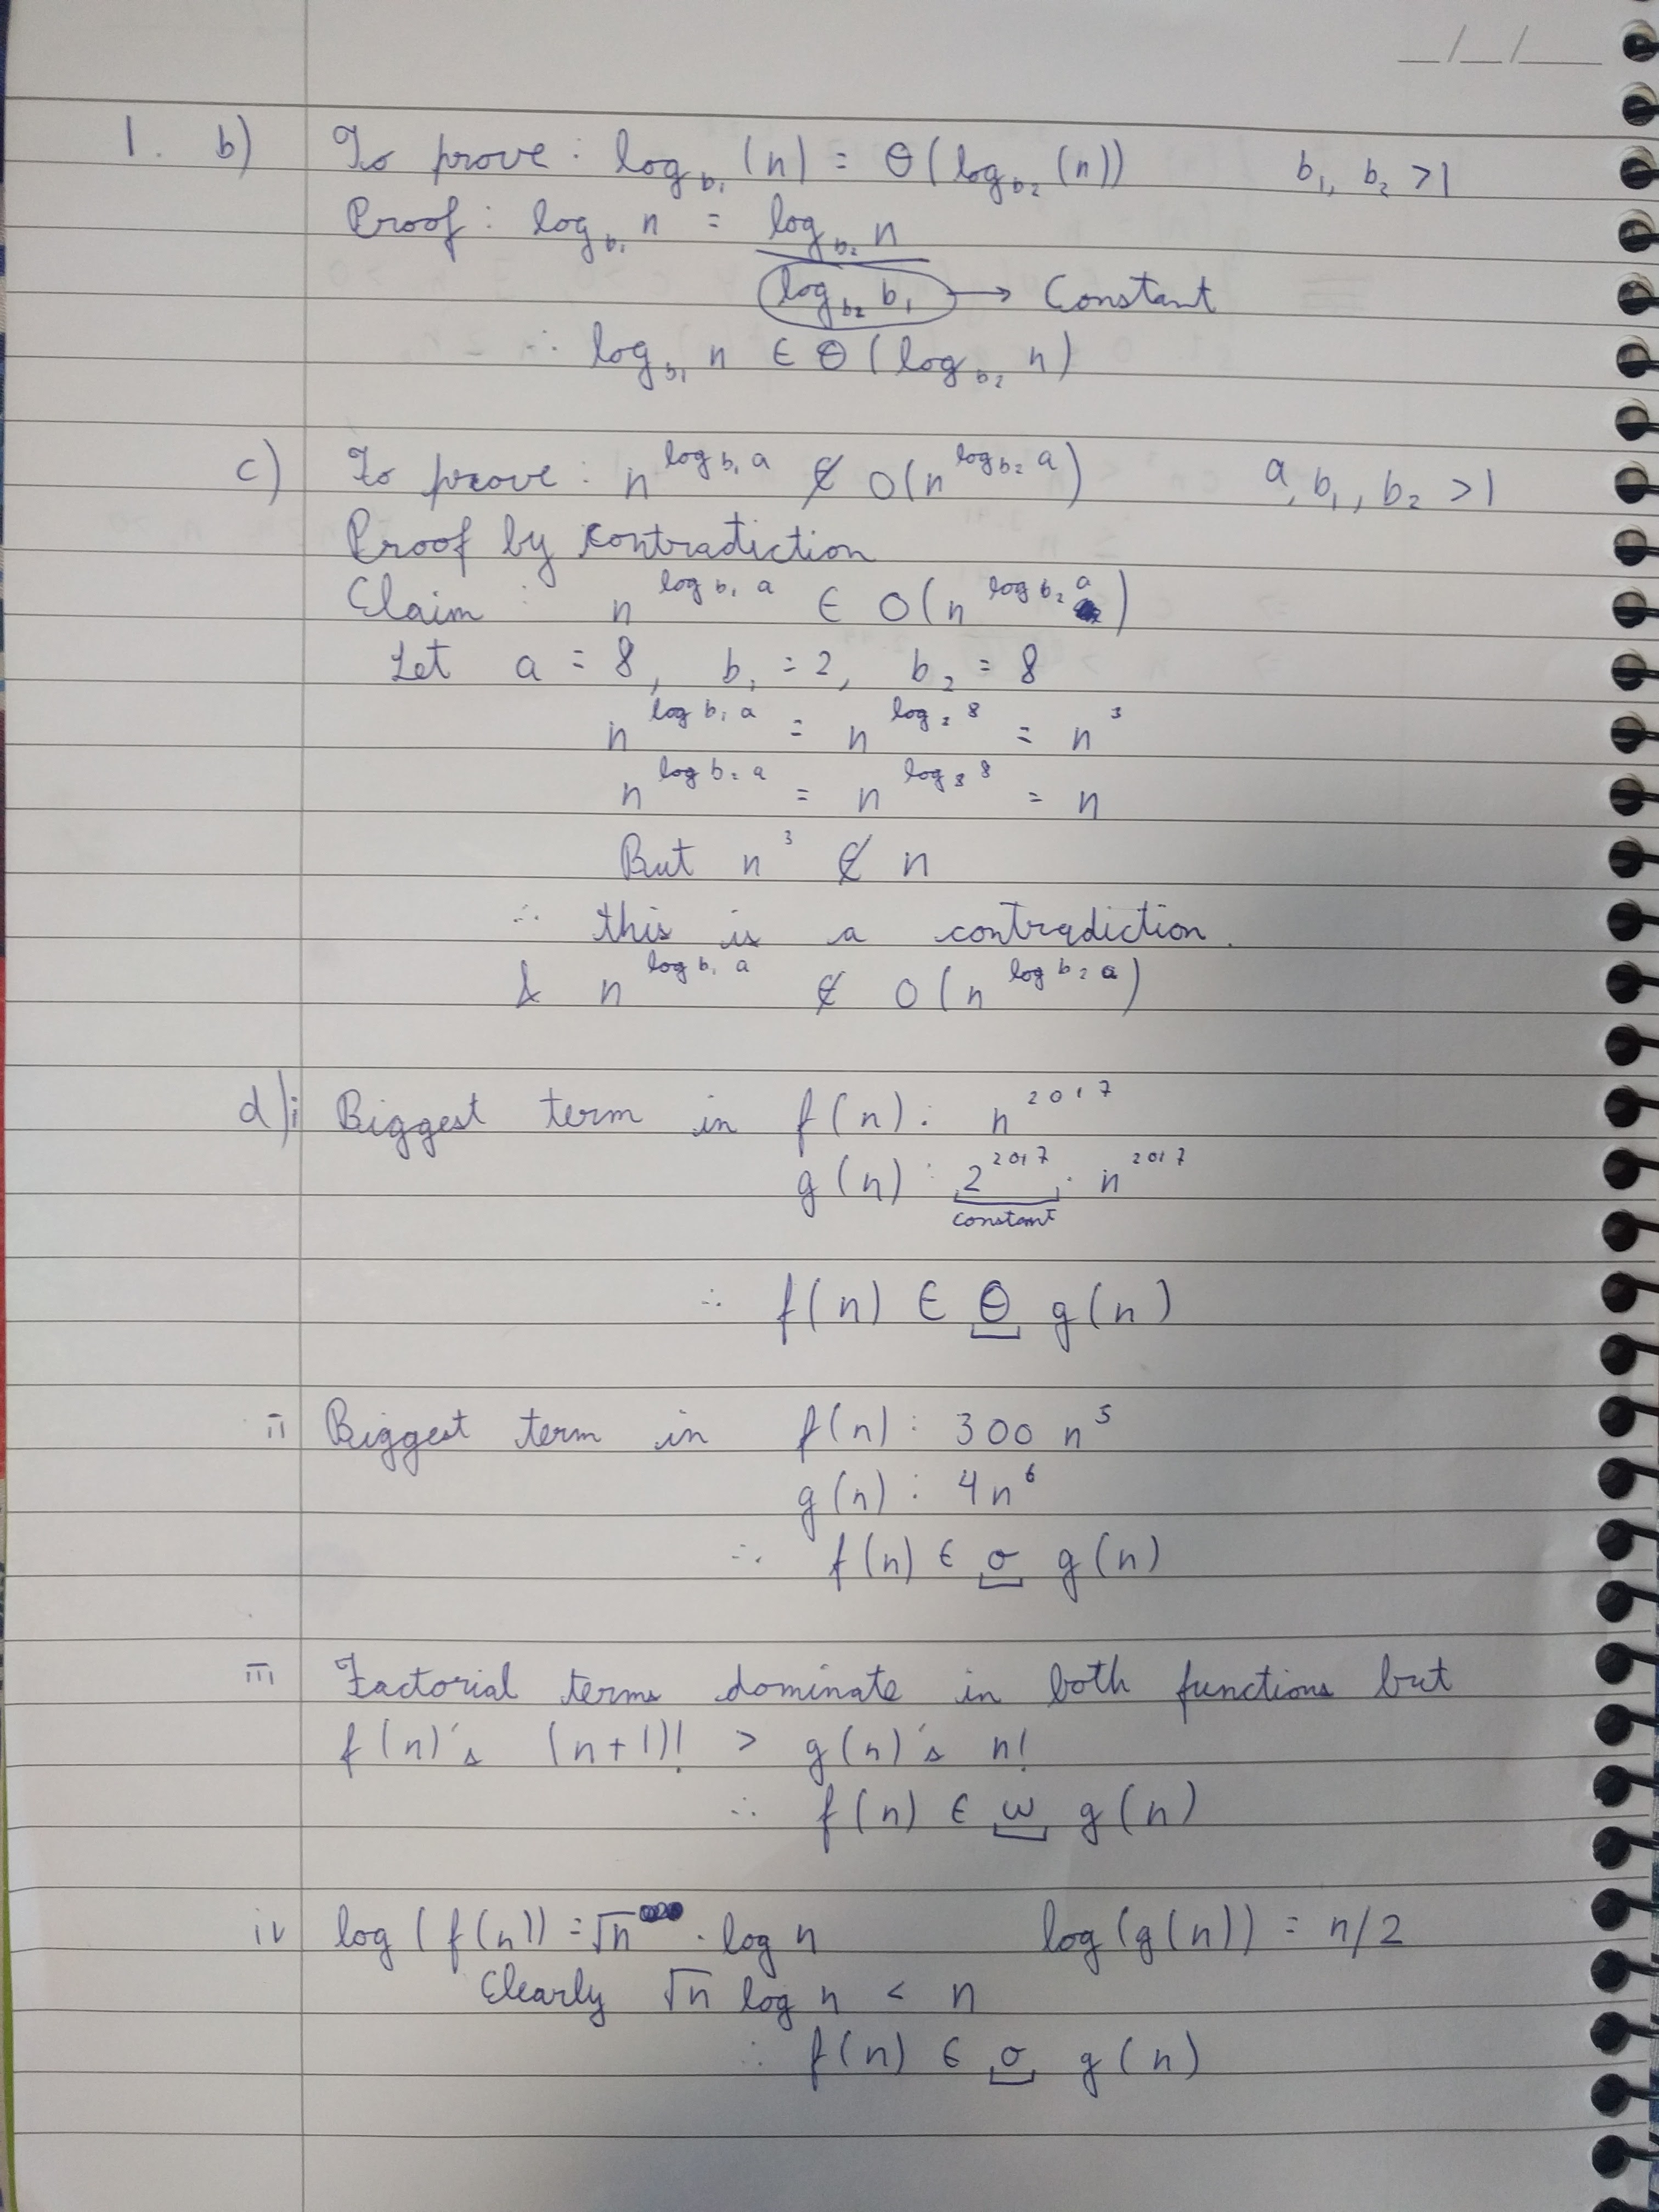 __/__/____
1. b) To prove : log_b₁ (n) = Θ(log_b₂ (n))   b₁, b₂ >1
Proof : log_b₁ n = log_b₂ n
log_b₂ b₁ → Constant
∴ log_b₁ n ∈ Θ(log_b₂ n)
c) To prove : n^(log b₁ a) ∉ O(n^(log b₂ a))   a, b₁, b₂ >1
Proof by contradiction
Claim : n^(log b₁ a) ∈ O(n^(log b₂ a))
Let a = 8, b₁ = 2, b₂ = 8
n^(log b₁ a) = n^(log₂ 8) = n³
n^(log b₂ a) = n^(log₈ 8) = n
But n³ ∉ n
∴ this is a contradiction.
& n^(log b₁ a) ∉ O(n^(log b₂ a))
d) i Biggest term in f(n) : n^2017
g(n) : 2^2017 · n^2017
constant
∴ f(n) ∈ Θ g(n)
ii Biggest term in f(n) : 300 n⁵
g(n) : 4n⁶
∴ f(n) ∈ o g(n)
iii Factorial terms dominate in both functions but
f(n)'s (n+1)! > g(n)'s n!
∴ f(n) ∈ ω g(n)
iv log(f(n)) = √n · log n   log(g(n)) = n/2
Clearly √n log n < n
∴ f(n) ∈ o g(n)